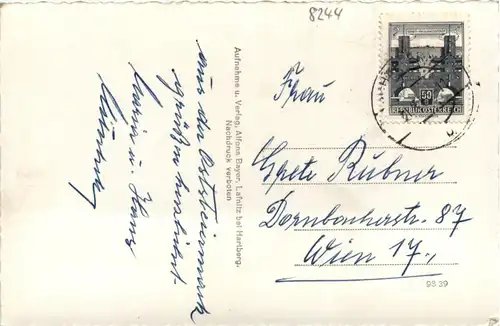 8244
50
REPUBLIK ÖSTERREICH
aus der Oststeiermark
grüßen herzlichst
u. Hans
Aufnahme u. Verlag, Alfons Bayer, Lafnitz bei Hartberg.
Nachdruck verboten
Frau
Grete Rubner
Dornbacherstr. 87
Wien 17.,
9839